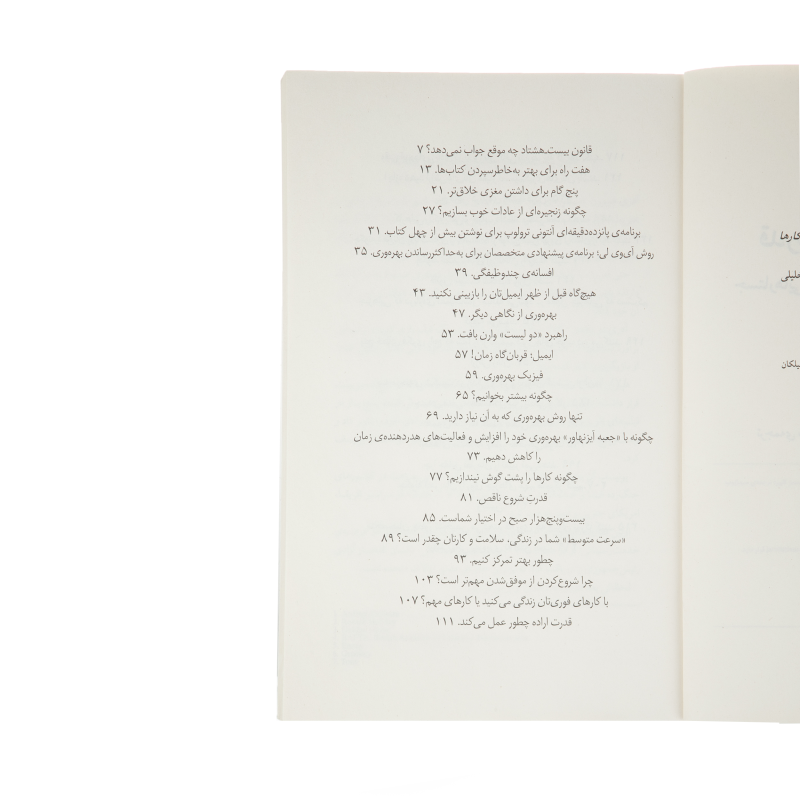 قانون بیست‌ـ‌هشتاد چه موقع جواب نمی‌دهد؟ ۷
هفت راه برای بهتر به‌خاطرسپردن کتاب‌ها. ۱۳
پنج گام برای داشتن مغزی خلاق‌تر. ۲۱
چگونه زنجیره‌ای از عادات خوب بسازیم؟ ۲۷
برنامه‌ی پانزده‌دقیقه‌ای آنتونی ترولوپ برای نوشتن بیش از چهل کتاب. ۳۱
روش آی‌وی لی؛ برنامه‌ی پیشنهادی متخصصان برای به‌حداکثررساندن بهره‌وری. ۳۵
افسانه‌ی چندوظیفگی. ۳۹
هیچ‌گاه قبل از ظهر ایمیل‌تان را بازبینی نکنید. ۴۳
بهره‌وری از نگاهی دیگر. ۴۷
راهبرد «دو لیست» وارن بافت. ۵۳
ایمیل؛ قربان‌گاه زمان! ۵۷
فیزیک بهره‌وری. ۵۹
چگونه بیشتر بخوانیم؟ ۶۵
تنها روش بهره‌وری که به آن نیاز دارید. ۶۹
چگونه با «جعبه آیزنهاور» بهره‌وری خود را افزایش و فعالیت‌های هدردهنده‌ی زمان
را کاهش دهیم. ۷۳
چگونه کارها را پشت گوش نیندازیم؟ ۷۷
قدرتِ شروع ناقص. ۸۱
بیست‌وپنج‌هزار صبح در اختیار شماست. ۸۵
«سرعت متوسط» شما در زندگی، سلامت و کارتان چقدر است؟ ۸۹
چطور بهتر تمرکز کنیم. ۹۳
چرا شروع‌کردن از موفق‌شدن مهم‌تر است؟ ۱۰۳
با کارهای فوری‌تان زندگی می‌کنید یا کارهای مهم؟ ۱۰۷
قدرت اراده چطور عمل می‌کند. ۱۱۱
کارها